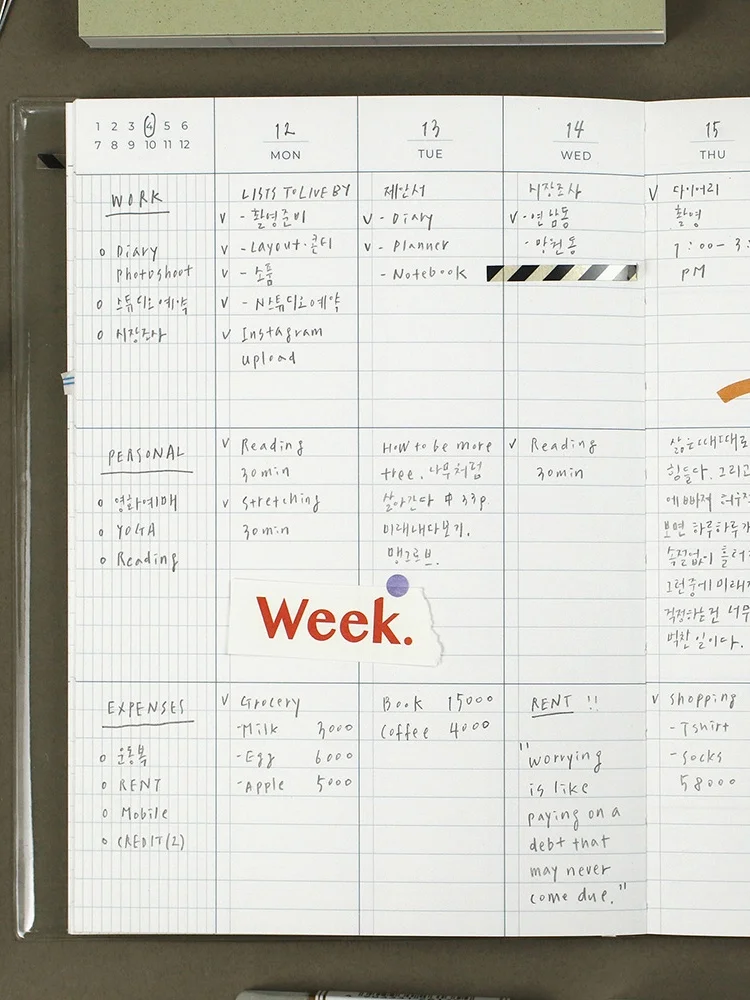 1 2 3 4 5 6
7 8 9 10 11 12
12
MON
13
TUE
14
WED
15
THU
WORK
o Diary
photoshoot
o 스튜디오예약
o 시장조사
LISTS TO LIVE BY
v - 촬영준비
v - Layout·콘티
v - 소품
v - N스튜디오예약
v Instagram
upload
제안서
v - Diary
v - Planner
- Notebook
시장조사
v - 연남동
- 망원동
v 다이어리
촬영
1:00 - 3:
PM
PERSONAL
o 영화예매
o YOGA
o Reading
v Reading
30min
v Stretching
30min
How to be more
tree. 나무처럼
살아간다 中 33p.
미래내다보기.
맹그로브.
v Reading
30min
삶은 때때로
힘들다. 그리고
보면 하루하루가
속절없이
그런중에 미래
걱정하는건 너무
벅찬 일이다.
Week.
EXPENSES
o 운동복
o RENT
o Mobile
o CREDIT(2)
v Grocery
-Milk 3000
-Egg 6000
-Apple 5000
Book 15000
Coffee 4000
RENT !!
"worrying
is like
paying on a
debt that
may never
come due."
v shopping
- Tshirt
- socks
58000